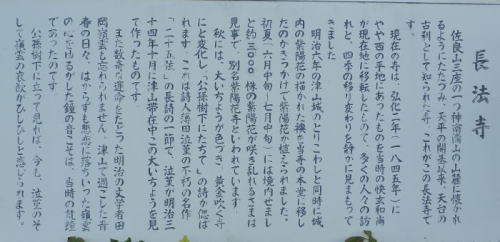 長法寺
佐良山三座の一つ神南備山の山麓に懐かれ
るようにたたづみ、天平の開基以来、天台の
古刹として知られた寺、これがこの長法寺で
す。
現在の寺は、弘化二年(一八四五年)に
やや西の平地にあったものを当時の快玄和尚
が現在地に移転したもので、多くの人々の訪
れと、四季の移り変わりを静かに見まもって
きました
明治六年の津山城のとりこわしと同時に城
内の紫陽花の描かれた襖が当寺の本堂に移し
たのがきっかけで紫陽花が植えられました。
初夏(六月中旬~七月中旬)には境内せまし
と約三〇〇〇株の紫陽花が咲き乱れるさまは
見事で、別名紫陽花寺といわれています
秋には、大いちょうが色づき、黄金吹く寺
にと変化し「公孫樹下にたちて」の詩が偲ば
れます。これは詩人薄田泣菫の不朽の名作
「二十五弦」の長詩の一節で、泣菫が明治三
十四年十月に津山滞在中この大いちょうを見
て作ったものです
また数奇な運命をたどった明治の文学者田
岡嶺雲も忘れられません、津山で過ごした青
春の日々、はからずも悲恋に落ちいった嶺雲
の心をゆるがした鐘の音こそは、当時の梵鐘
であったのです。
公孫樹下に立って見れば、今も、泣菫のそ
して嶺雲の哀歓がひしひしと感じられます。